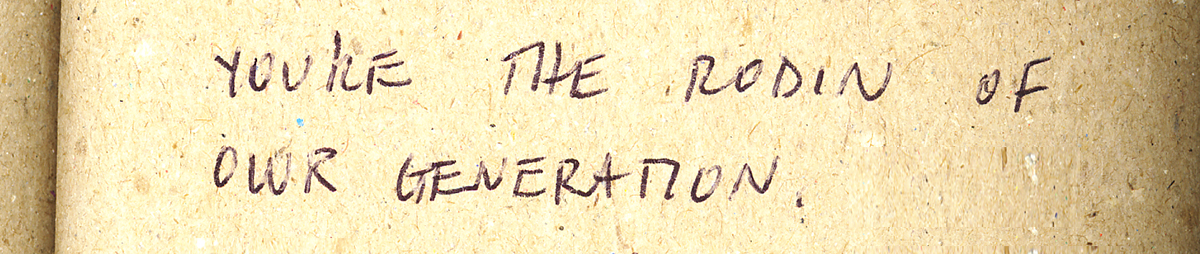 YOU'RE THE RODIN OF
OUR GENERATION.